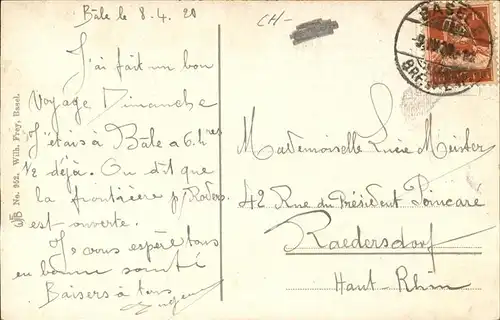 Bâle le 8.4.20
CH-
J'ai fait un bon
voyage Dimanche
J'étais à Bâle à 6 hres
1/2 déjà. On dit que
la frontière p/ Roders
est ouverte.
Je vous espère tous
en bonne santé
Baisers à tous
Eugene
Mademoiselle Lucie Meister
42 Rue du Président Poincaré
Raedersdorf
Haut-Rhin
BASEL
No. 952. Wilh. Frey, Basel.